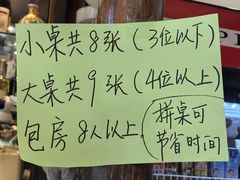 小桌共8张（3位以下）
大桌共9张（4位以上）
包房8人以上.
（拼桌可
节省时间）